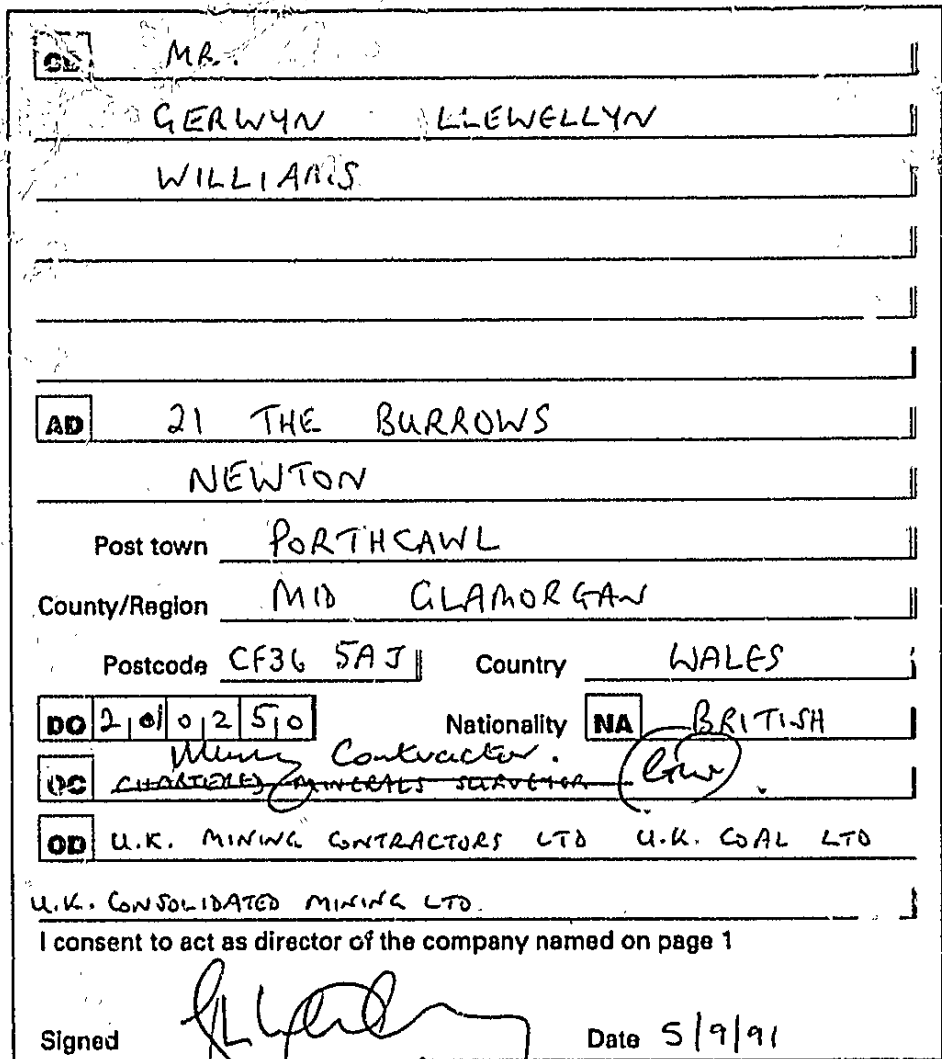 CD MR.
GERWYN LLEWELLYN
WILLIAMS
AD 21 THE BURROWS
NEWTON
Post town PORTHCAWL
County/Region MID GLAMORGAN
Postcode CF36 5AJ Country WALES
DO 2 0 0 2 5 0 Nationality NA BRITISH
Mining Contractor.
OC CHARTERED MINERALS SURVEYOR GLW
OD U.K. MINING CONTRACTORS LTD U.K. COAL LTD
U.K. CONSOLIDATED MINING LTD.
I consent to act as director of the company named on page 1
Signed Date 5/9/91